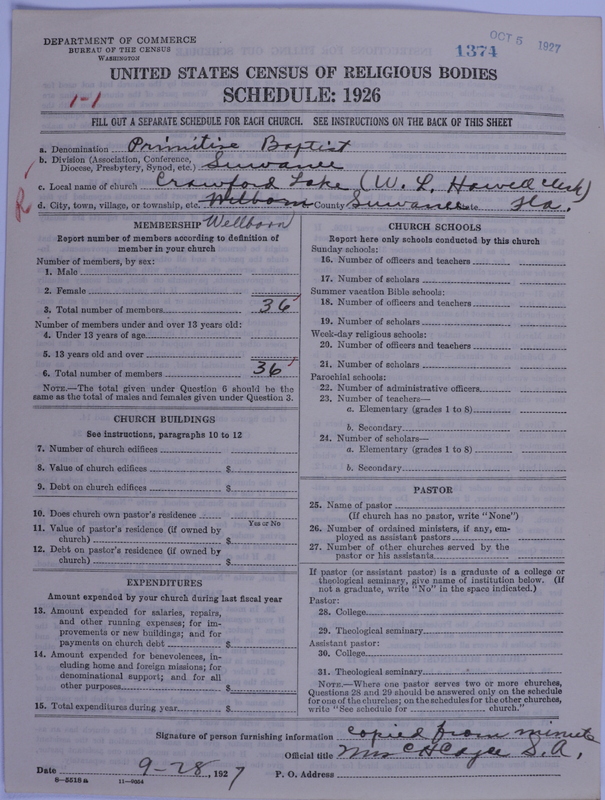 DEPARTMENT OF COMMERCE
BUREAU OF THE CENSUS
WASHINGTON
1374
OCT 5 1927
UNITED STATES CENSUS OF RELIGIOUS BODIES
SCHEDULE: 1926
1-1
FILL OUT A SEPARATE SCHEDULE FOR EACH CHURCH. SEE INSTRUCTIONS ON THE BACK OF THIS SHEET
a. Denomination Primitive Baptist
b. Division (Association, Conference, Diocese, Presbytery, Synod, etc.) Suwanee
c. Local name of church Crawford Lake (W. L. Howell clerk)
d. City, town, village, or township, etc. Welborn County Suwanee State Fla.
R
MEMBERSHIP Wellborn
Report number of members according to definition of
member in your church
Number of members, by sex:
1. Male
2. Female
3. Total number of members 36
Number of members under and over 13 years old:
4. Under 13 years of age
5. 13 years old and over
6. Total number of members 36
NOTE.—The total given under Question 6 should be the
same as the total of males and females given under Question 3.
CHURCH BUILDINGS
See instructions, paragraphs 10 to 12
7. Number of church edifices
8. Value of church edifices $
9. Debt on church edifices $
10. Does church own pastor's residence
Yes or No
11. Value of pastor's residence (if owned by
church) $
12. Debt on pastor's residence (if owned by
church) $
EXPENDITURES
Amount expended by your church during last fiscal year
13. Amount expended for salaries, repairs,
and other running expenses; for im-
provements or new buildings; and for
payments on church debt $
14. Amount expended for benevolences, in-
cluding home and foreign missions; for
denominational support; and for all
other purposes $
15. Total expenditures during year $
CHURCH SCHOOLS
Report here only schools conducted by this church
Sunday schools:
16. Number of officers and teachers
17. Number of scholars
Summer vacation Bible schools:
18. Number of officers and teachers
19. Number of scholars
Week-day religious schools:
20. Number of officers and teachers
21. Number of scholars
Parochial schools:
22. Number of administrative officers
23. Number of teachers—
a. Elementary (grades 1 to 8)
b. Secondary
24. Number of scholars—
a. Elementary (grades 1 to 8)
b. Secondary
PASTOR
25. Name of pastor
(If church has no pastor, write "None")
26. Number of ordained ministers, if any, em-
ployed as assistant pastors
27. Number of other churches served by the
pastor or his assistants
If pastor (or assistant pastor) is a graduate of a college or
theological seminary, give name of institution below. (If
not a graduate, write "No" in the space indicated.)
Pastor:
28. College
29. Theological seminary
Assistant pastor:
30. College
31. Theological seminary
NOTE.—Where one pastor serves two or more churches,
Questions 28 and 29 should be answered only on the schedule
for one of the churches; on the schedules for the other churches,
write "See schedule for church."
Signature of person furnishing information copied from minute
Official title Mrs C H Cayce S. A.
Date 9-28, 1927 P. O. Address
8-5518a 11-9064